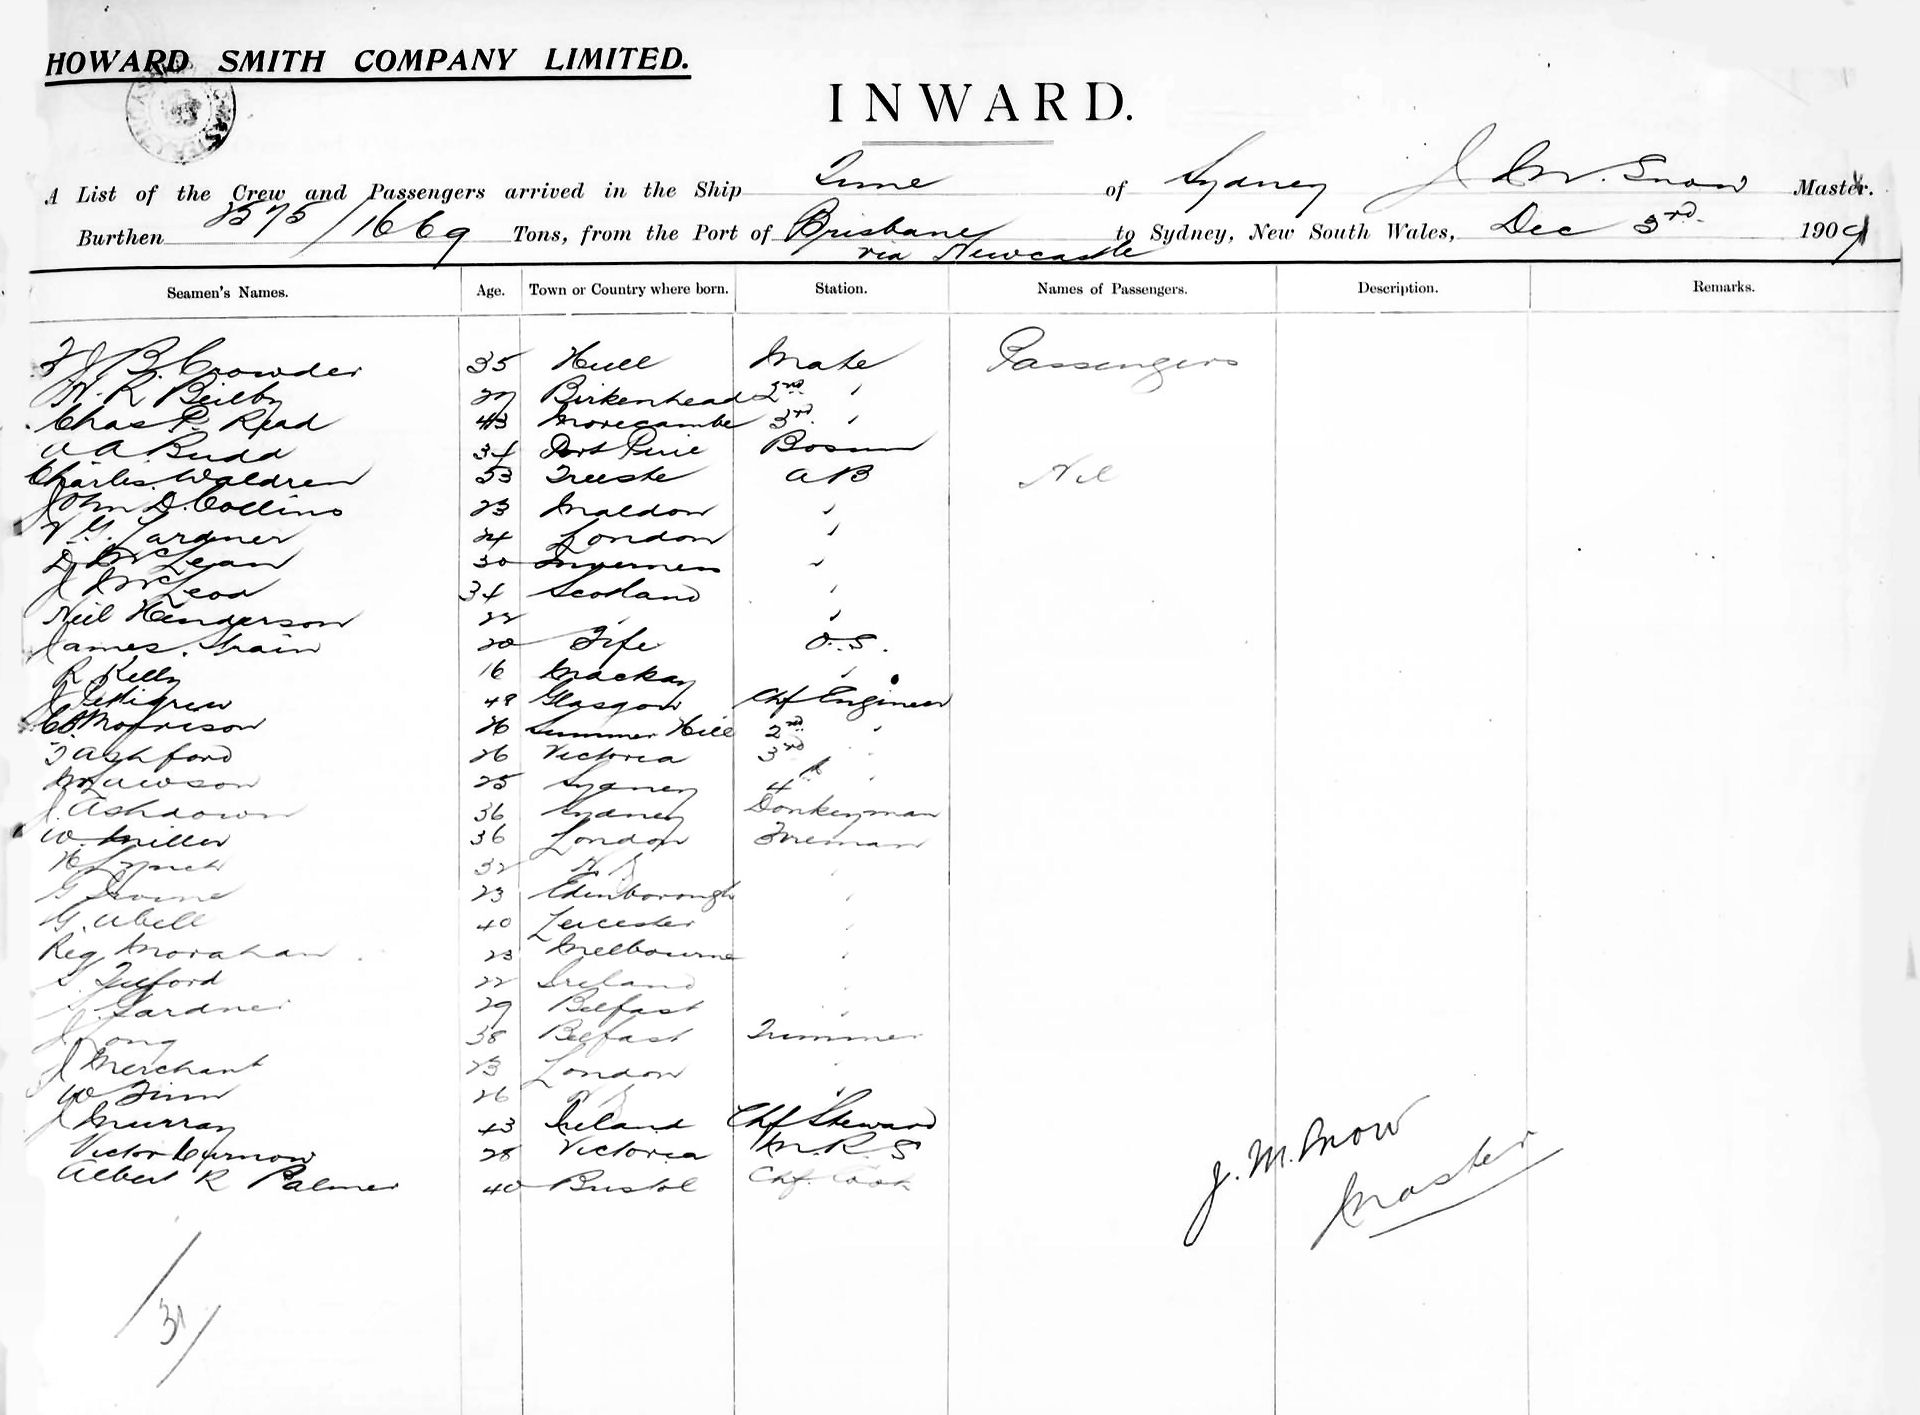 HOWARD SMITH COMPANY LIMITED.
INWARD.
A List of the Crew and Passengers arrived in the Ship Time of Sydney J M. Snow Master.
Burthen 2575/1669 Tons, from the Port of Brisbane to Sydney, New South Wales, Dec 3rd 1909
via Newcastle
Seamen's Names. Age. Town or Country where born. Station. Names of Passengers. Description. Remarks.
J B. Crowder 35 Hull Mate Passengers
H. R Beilby 27 Birkenhead 2nd "
Chas P. Read 43 Morecambe 3rd "
A Budd 34 Port Pirie Bosun
Charles Waldren 53 Trieste AB Nil
John D. Collins 23 Maldon "
V. G. Gardner 24 London "
D McLean 30 Inverness "
J McLeod 34 Scotland "
Neil Henderson 22 " "
James Train 20 Fife O.S.
R Kelly 16 Mackay "
J Pettigrew 49 Glasgow Chf Engineer
Morrison Summer Hill 2nd "
Ashford 26 Victoria 3rd "
Lawson 25 Sydney 4 "
J. Ashdown 36 Sydney Donkeyman
W. Miller 36 London Fireman
H Lynch 32 N Z "
G Irvine 23 Edinborough "
G. Abell 40 Leicester "
Reg Morahan 23 Melbourne "
S. Tilford 22 Ireland
Gardner 29 Belfast "
J Long 38 Belfast Trimmer
J Merchant 23 London "
W Finn 26 N Z "
J Murray 43 Ireland Chf Steward
Victor Curnow 28 Victoria M.R.S
Albert R Palmer 40 Bristol Chf. Cook
J. M. Snow
Master
31